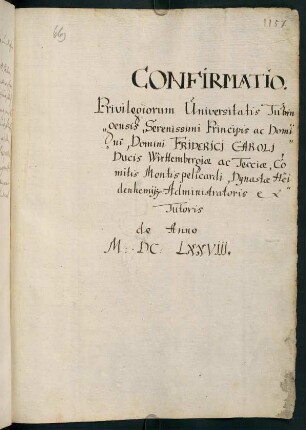 66)
1157
CONFIRMATIO.
Privilegiorum Universitatis Tubin
„gensis Serenissimi Principis ac Domi
„ni, Domini FRIDERICI CAROLI,
Ducis Wirttembergiæ ac Tecciæ, Co
mitis Montispelicardi, Dynastæ Hei
denhemij, Administratoris &
Tutoris
de Anno
M: DC: LXXVIII.